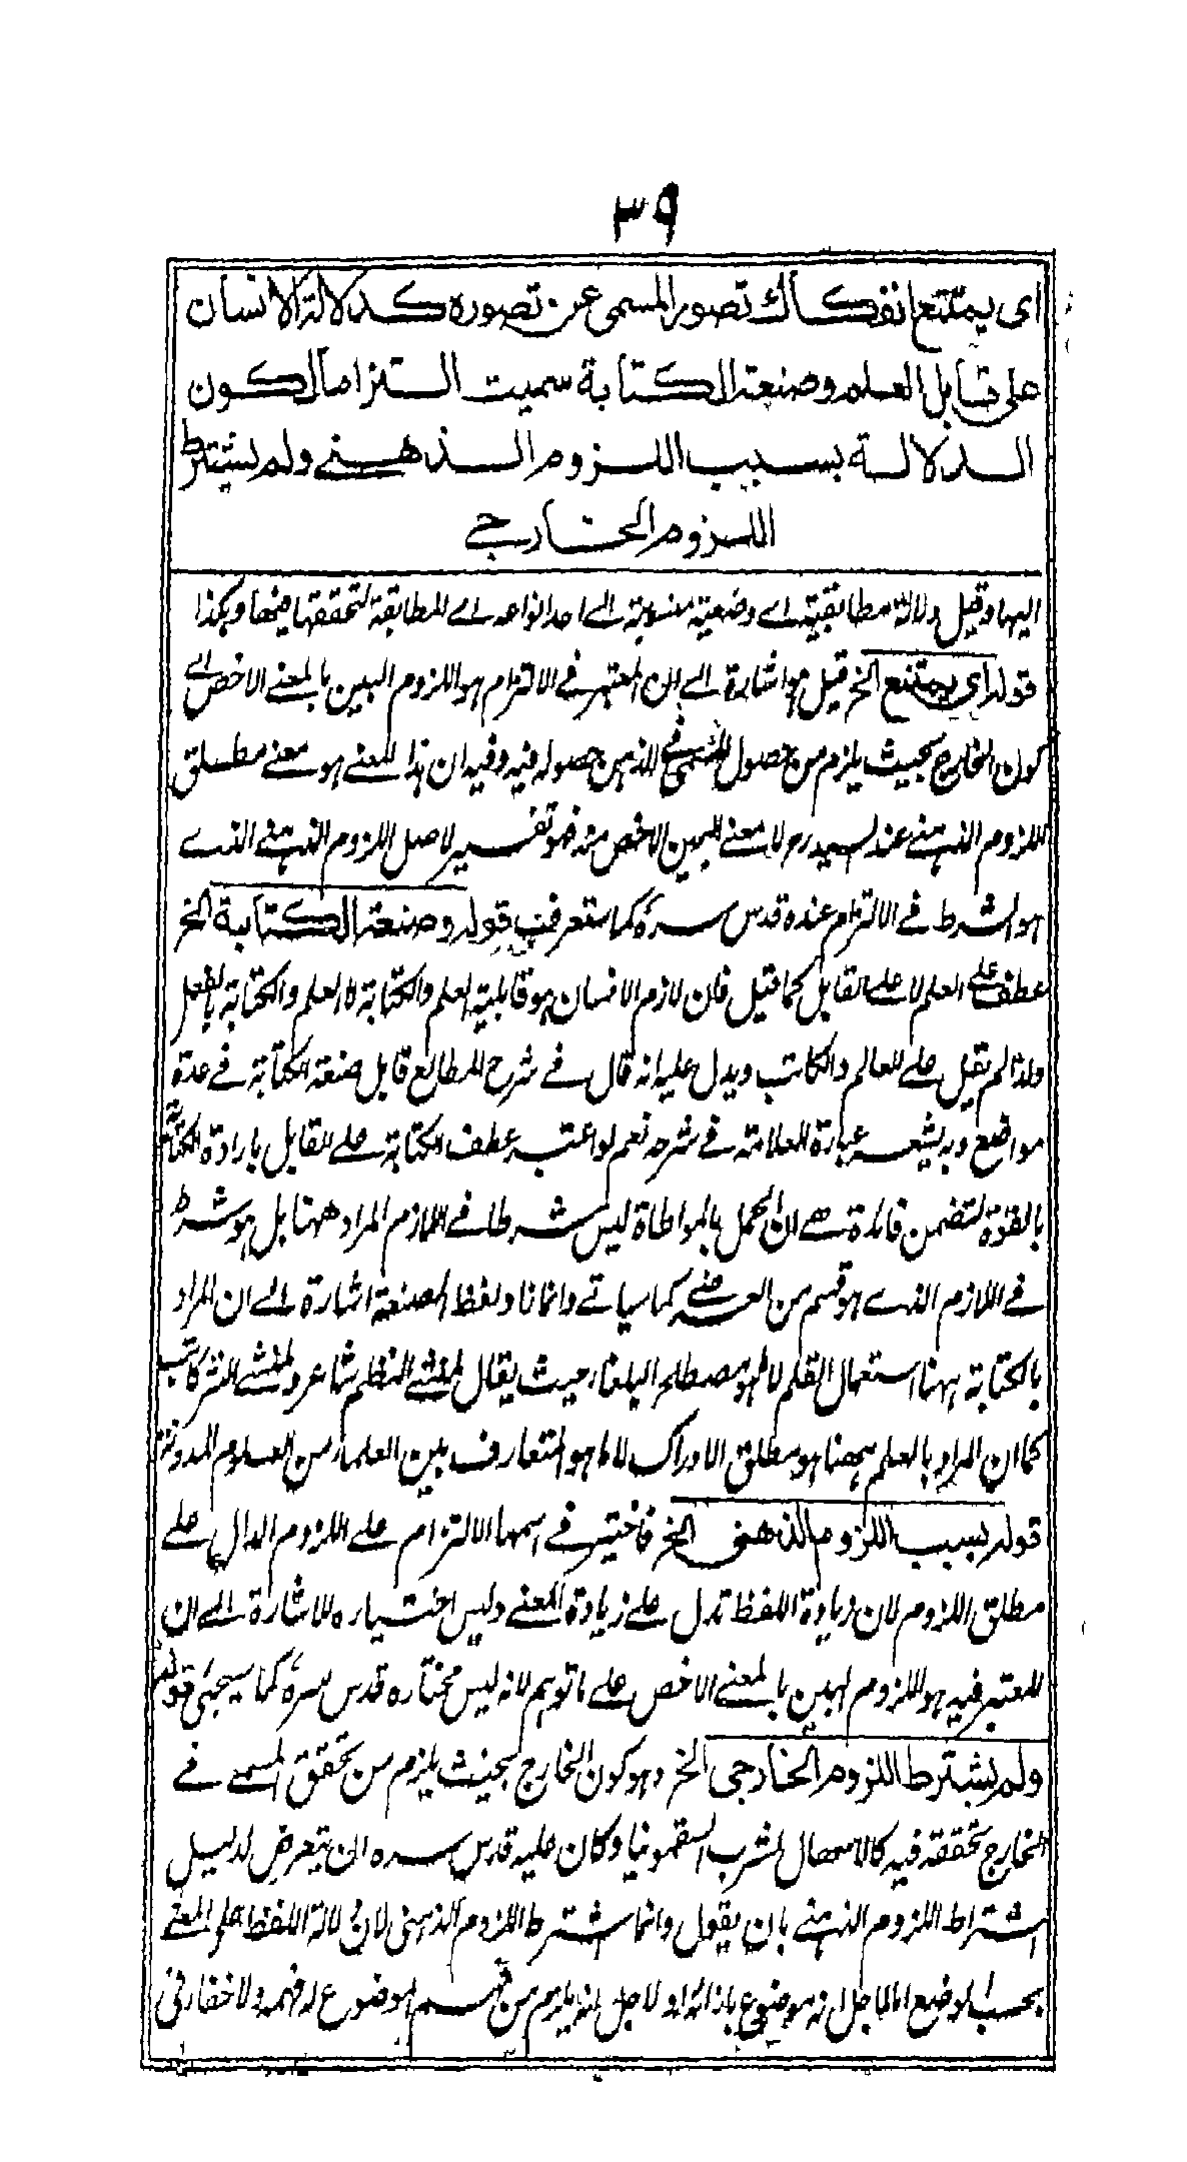 ٣٩
اى يمتنع انفكاك تصور المسمى عن تصوره كدلالة الانسان
على قابل العلم وصنعة الكتابة سميت التزاما لكون
الدلالة بسبب اللزوم الذهنى ولم يشترط
اللزوم الخارجى
اليها وقيل دلالة مطابقية اے وضعية منسوبة الے احد انواعه اے المطابقة لتحققها ضمنها وهكذا
قوله اى يمتنع الخ قيل هو اشارة الے ان المعتبر فے الالتزام هو اللزوم البين بالمعنے الاخص اے
كون الخارج بحيث يلزم من حصول المسمى فے الذهن حصوله فيه وفيه ان هذا المعنے هو معنے مطلق
اللزوم الذهنے عند السيد رح لا معنے للبين الاخص منه فهو تفسير لاصل اللزوم الذهنے الذے
هو الشرط فے الالتزام عنده قدس سره كما ستعرف قوله وصنعة الكتابة الخ
عطف علے العلم لا علے القابل كما قيل فان لازم الانسان هو قابلية العلم والكتابة لا العلم والكتابة بالفعل
ولذا لم يقل علے العالم والكاتب ويدل عليه انه قال فے شرح المطالع قابل صنعة الكتابة فے عدة
مواضع وبه يشعر عبارة العلامة فے شرحه نعم لو اعتبر عطف الكتابة علے القابل بارادة الكتابة
بالقوة لتضمن فائدة هے ان الحمل بالمواطاة ليس شرطا فے اللازم المراد ههنا بل هو شرط
فے اللازم الذے هو قسم من العرضے كما سياتے وانما زاد لفظ الصنعة اشارة الے ان المراد
بالكتابة ههنا استعمال القلم لا ما هو مصطلح البلغاء حيث يقال لمنشئ النظم شاعر ولمنشئ النثر كاتب
كما ان المراد بالعلم ههنا هو مطلق الادراك لا ما هو المتعارف بين العلماء من العلوم المدونة
قوله بسبب اللزوم الذهنى الخ فاختير فے اسمها الالتزام علے اللزوم الدال علے
مطلق اللزوم لان زيادة اللفظ تدل علے زيادة المعنے وليس اختياره للاشارة الے ان
المعتبر فيه هو اللزوم البين بالمعنے الاخص علے ما توهم لانه ليس مختاره قدس سره كما سيجئ قوله
ولم يشترط اللزوم الخارجى الخ وهو كون الخارج بحيث يلزم من تحقق المسمے فے
الخارج تحققه فيه كالاسهال لشرب السقمونيا وكان عليه قدس سره ان يتعرض لدليل
اشتراط اللزوم الذهنے بان يقول وانما اشترط اللزوم الذهنى لان دلالة اللفظ علے المعنے
بحسب الوضع اما لاجل انه موضوع بازائه او لاجل انه يلزم من فهم الموضوع له فهمه ولا خفاء فى